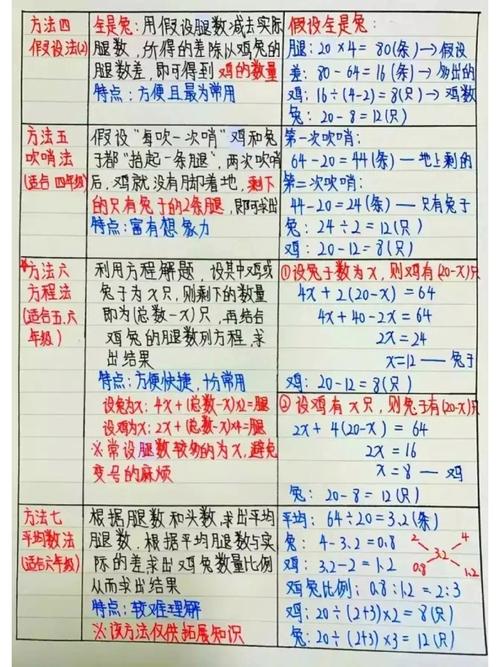 方法四
假设法(2)
全是兔:用假设腿数减去实际
腿数,所得的差除以鸡兔的
腿数差,即可得到 鸡的数量
特点:方便且最为常用
假设全是兔:
腿:20×4=80(条)→假设
差:80-64=16(条)→多出的
鸡:16÷(4-2)=8(只)→鸡数
兔:20-8=12(只)
方法五
吹哨法
(适合四年级)
假设"每吹一次哨"鸡和兔
子都"抬起一条腿",两次吹哨
后,鸡就没有脚着地,剩下
的只有兔子的2条腿,即可求出
特点:富有想象力
第一次吹哨:
64-20=44(条)—地上剩的
第二次吹哨:
44-20=24(条)—只有兔子
兔:24÷2=12(只)
鸡:20-12=8(只)
*方法六
方程法
(适合五、六
年级)
利用方程解题,设其中鸡或
兔子为x只,则剩下的数量
即为(总数-x)只,再结合
鸡兔的腿数列方程,求
出结果
特点:方便快捷,十分常用
设兔为x:4x+(总数-x)×2=腿
设鸡为x:2x+(总数-x)×4=腿
※常设腿数较多的为x,避免
变号的麻烦
①设兔子数为x,则鸡有(20-x)只
4x+2(20-x)=64
4x+40-2x=64
2x=24
x=12—兔子
鸡:20-12=8(只)
②设鸡有x只,则兔子有(20-x)只
2x+4(20-x)=64
2x=16
x=8—鸡
兔:20-8=12(只)
方法七
平均数法
(适合六年级)
根据腿数和头数,求出平均
腿数,根据平均腿数与实
际的差求出鸡兔数量比例
从而求出结果
特点:较难理解
※该方法仅作拓展知识
平均:64÷20=3.2(条)
兔:4-3.2=0.8
鸡:3.2-2=1.2
2 4
3.2
0.8 1.2
鸡兔比例:0.8:1.2=2:3
鸡:20÷(2+3)×2=8(只)
兔:20÷(2+3)×3=12(只)